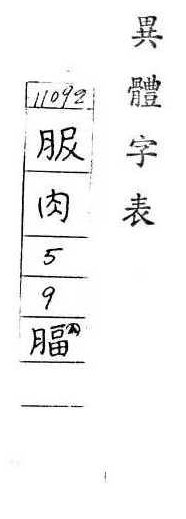 異體字表
11092
肉
5
9
腷